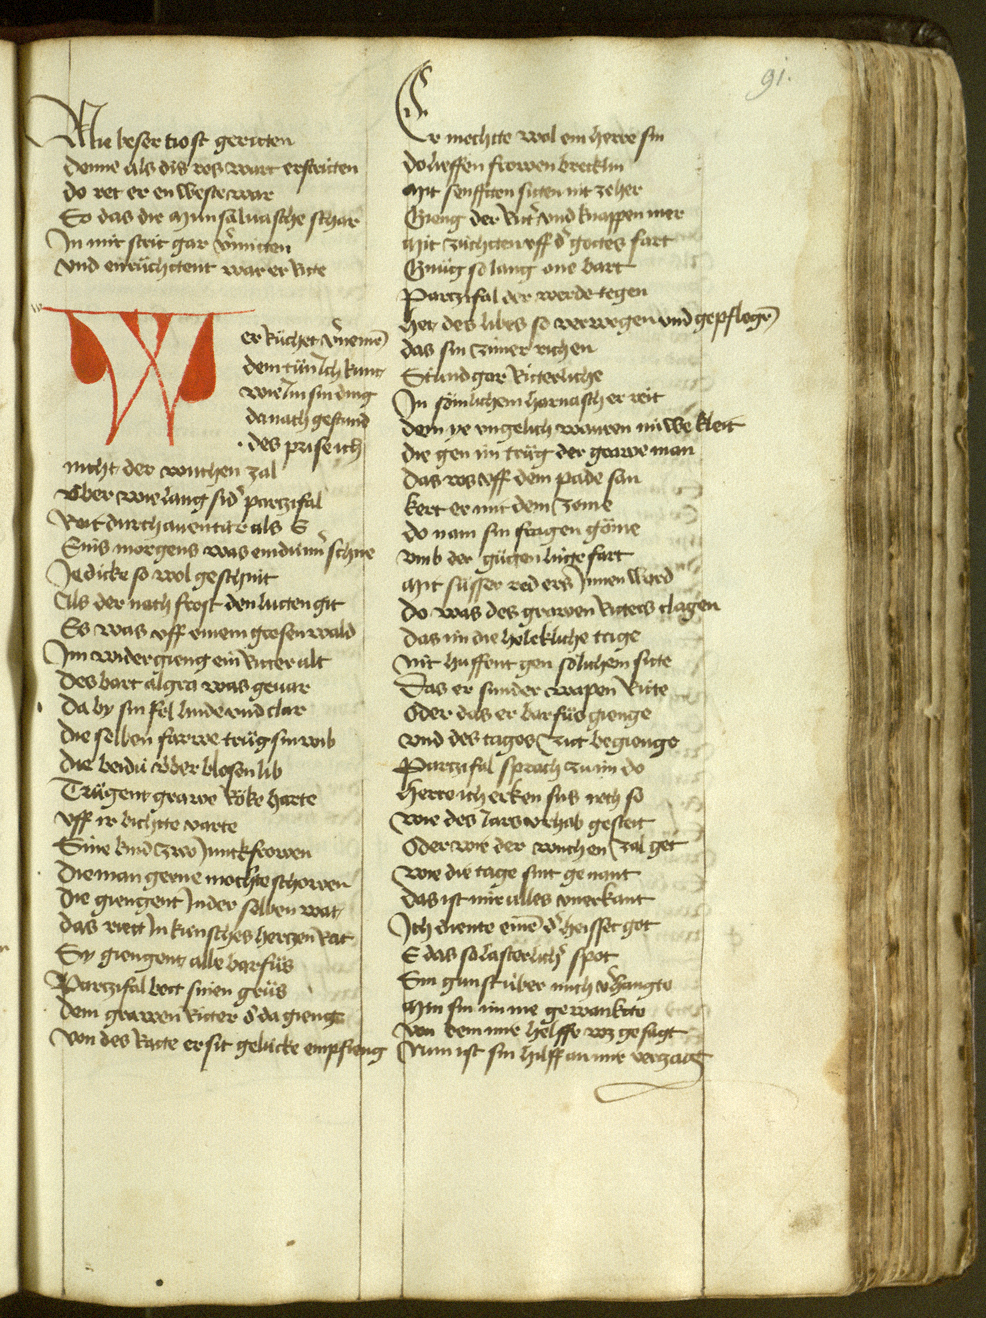 91.
Nie beser trost geritten
denne als dis ros wart erstritten
do ret er en weste war
So das die Munsaluasche schar
In mit strit gar v̾mitten
vnd enruͤchtent war er Rite
Wer Ruͤchet v̾nemē
dem tuͦn Ich kunt
wie Im sin ding
da nach gestund
des prise ich
nicht der wuchen zal
Vber wie lang sid partzifal
Reit durch auentúr als E
Eins morgens was ein dúnn̾ schne
Ie dicke so wol geschnit
Als der nach frost den luͤten git
Es was vff einem grosen wald
Im wider gieng ein Ritter alt
Des bart al gra was geuar
Da by sin fel linde vnd clar
Die selben farwe truͦg sin wib
Die beidú úber blosen lib
Truͦgent grawe Roͤke harte
Vff ir bichte varte
Sine kind zwo Junckfrowen
Die man gerne mochte schowen
Die giengent In der selben wat
das riet In kúnsches hertzen Rat
Sy giengent alle barfuͤs
Partzifal bot sinen gruͦs
dem grawen Ritter d̾ da gienge
Von des Ratte er sit gelúcke empfieng
Er mochte wol ein herre sin
do lieffen frowen breckin
Mit senfften sitten nit ze her
Gieng der Rit̾ vnd knappen mer
Mit zúchten vff d̾ gottes fart
Gnuͦg so lang one bart
Partzifal der werde tegen
Het des libes so verwegen vnd gepflegē
das sin zimer richen
Stund gar Ritterliche
In soͤmlichem harnasch er reit
dem ye vngelich waren im we kleit
die gen im truͦg der grawe man
Das ros vff dem pade san
kert er mit dem zome
do nam sin fragen goͤme
vmb der guͤten lúte fart
Mit suͤsser red ers Innen ward
Do was des grawen Ritters clagen
Das im die heleklliche tage
Nit huffent gen soͤlichem sitte
Das er sunder wapen Ritte
Oder das er barfuͤs gienge
vnd des tages zit begienge
Partzifal sprach zu im do
Herre ich erken sus noch so
wie des Iars vrhab gesteit
Oder wie der wuchen zal get
wie die tage sint genant
das ist mir alles vnerkant
Ich diente einē d̾ heisset got
E das so lasterlich̾ spot
Sin gunst úber mich v̾hangte
Min sin im nie gewankte
Von dem mir helffe wz gesagt
Nun ist sin hilff an mir verzagt